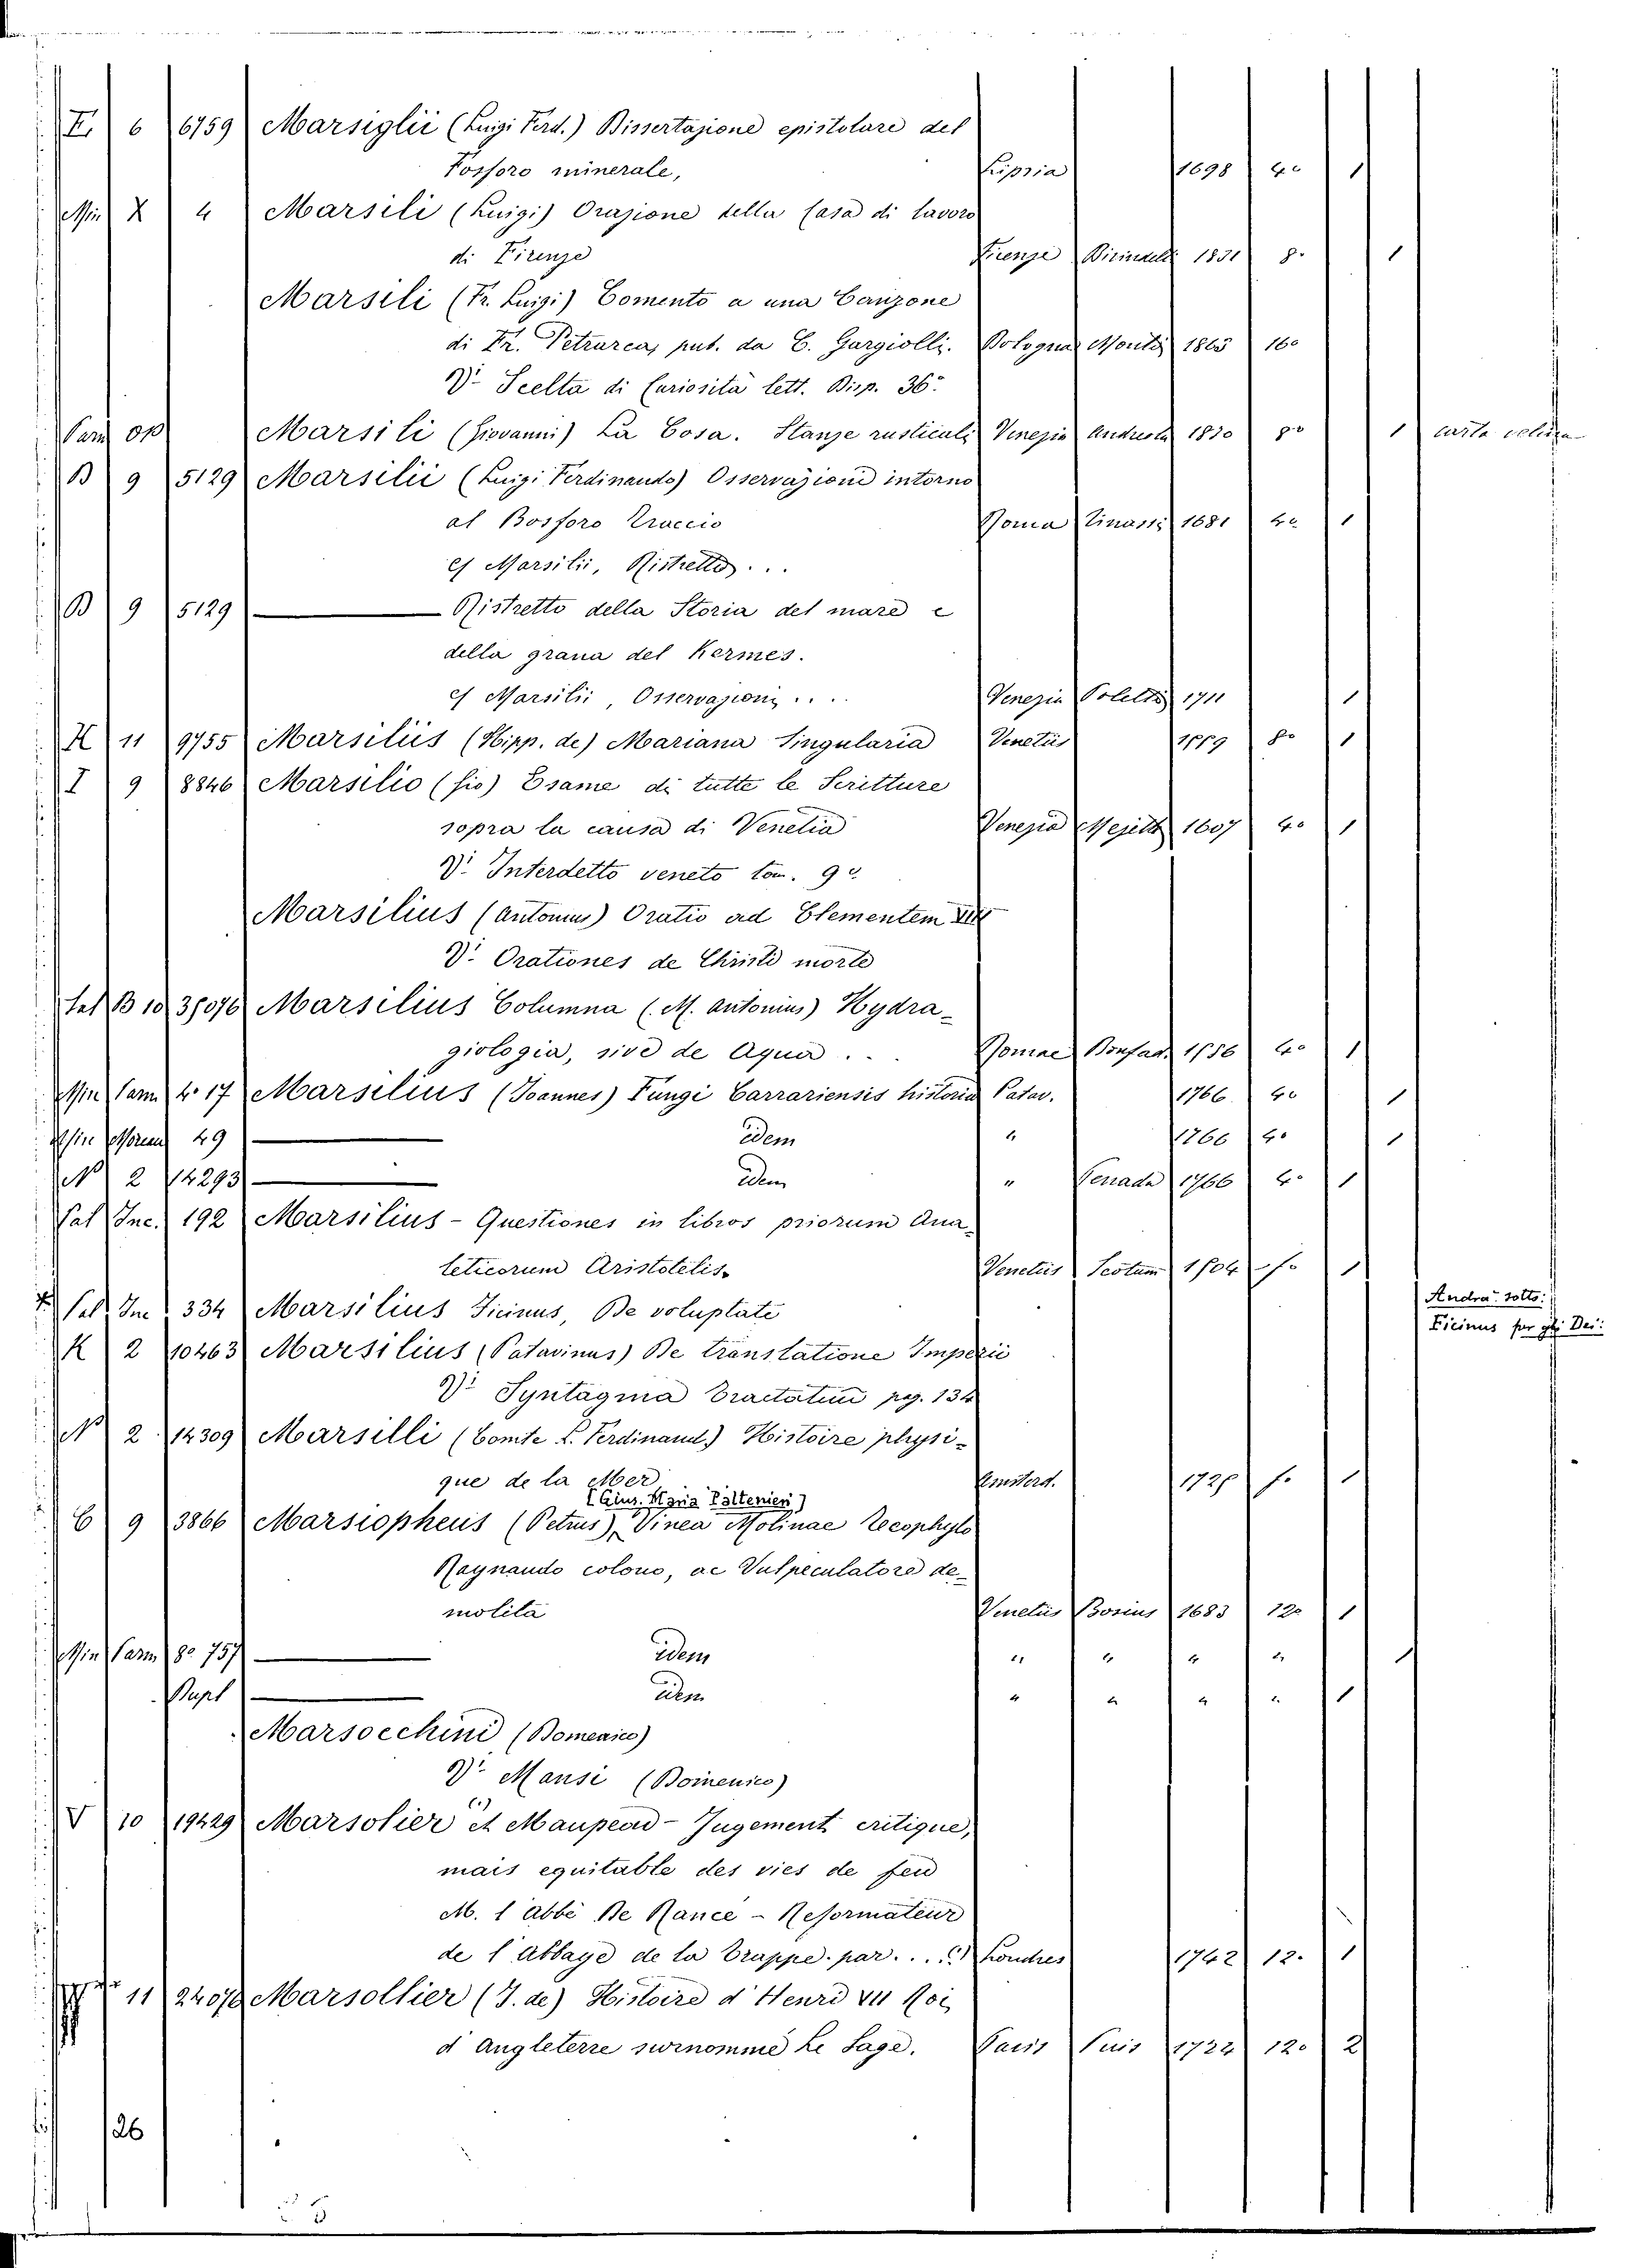 E 6 6759 Marsiglii (Luigi Ferd.) Dissertazione epistolare del
Fosforo minerale, Lipsia 1698 4o 1
Min X 4 Marsili (Luigi) Orazione della Casa di lavoro
di Firenze Firenze Birindelli 1831 8o 1
Marsili (Fr. Luigi) Comento a una Canzone
di Fr. Petrarca, pub. da C. Gargiolli. Bologna Monti 1863 16o
V. Scelta di Curiosità lett. Disp. 36a
Misc op Marsili (Giovanni) La Cosa. Stanze rusticali Venezia Andreola 1830 8o 1 carta velina
B 9 5129 Marsilii (Luigi Ferdinando) Osservazioni intorno
al Bosforo Traccio Roma Tinassi 1681 4o 1
cf Marsilii, Ristretto...
B 9 5129 Ristretto della Storia del mare e
della grana del Kermes.
cf Marsilii, Osservazioni.... Venezia Poletti 1711 1
H 11 9755 Marsiliis (Hipp. de) Mariana Singularia Venetiis 1559 8o 1
I 9 8846 Marsilio (fio) Esame di tutte le Scritture
sopra la causa di Venetia Venezia Mejetti 1607 4o 1
V. Interdetto veneto tom. 9o
Marsilius (Antonius) Oratio ad Clementem VIII
V. Orationes de Christi morte
Sal B 10 35076 Marsilius Columna (M. Antonius) Hydra-
giologia, sive de Aqua... Romae Bonfad. 1586 4o 1
Min Parm 4o 17 Marsilius (Joannes) Fungi Carrariensis historia Patav. 1766 4o 1
Min Moreni 49 idem " 1766 4o 1
N 2 14293 idem " Penada 1766 4o 1
Sal Inc. 192 Marsilius - Questiones in libros priorum Ana-
leticorum Aristotelis. Venetiis Scotum 1504 fo 1
Sal Inc 334 Marsilius Ficinus, De voluptate
Andra' sotto:
Ficinus per gli Dei:
K 2 10463 Marsilius (Patavinus) De translatione Imperii
V. Syntagma Tractatum pag. 134
N 2 14309 Marsilli (Comte L. Ferdinand.) Histoire physi-
que de la Mer Amsterd. 1725 fo 1
[Gius. Maria Paltenieri]
C 9 3866 Marsiopheus (Petrus), Vinea Molinae Tecophylo
Raynaudo colono, ac Vulpeculatore de-
molita Venetiis Bosius 1683 12o 1
Min Parm 8o 757 idem " " " " 1
Dupl idem " " " " 1
Marsocchini (Domenico)
V. Mansi (Domenico)
V 10 19429 Marsolier et Maupeou - Jugement critique,
mais equitable des vies de feu
M. l'Abbé De Rancé - Reformateur
de l'Abbaye de la Trappe. par.... Londres 1742 12o 1
11 24078 Marsollier (J. de) Histoire d'Henri VII Roi
d'Angleterre surnommé Le Sage. Paris Puis 1724 12o 2
26